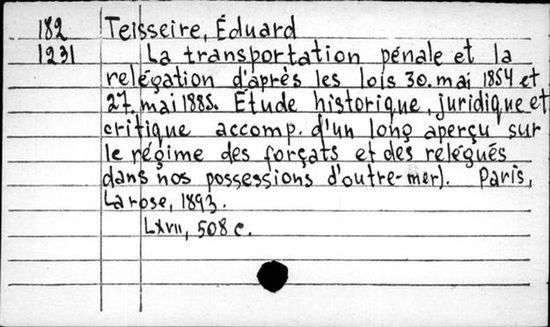 182 Teisseire, Éduard
1231 La transportation pénale et la
relégation d'après les lois 30. mai 1854 et
27. mai 1885. Étude historique, juridique et
critique accomp. d'un long aperçu sur
le régime des forçats et des relégués
dans nos possessions d'outre-mer). Paris,
Larose, 1893.
LXVII, 508 c.